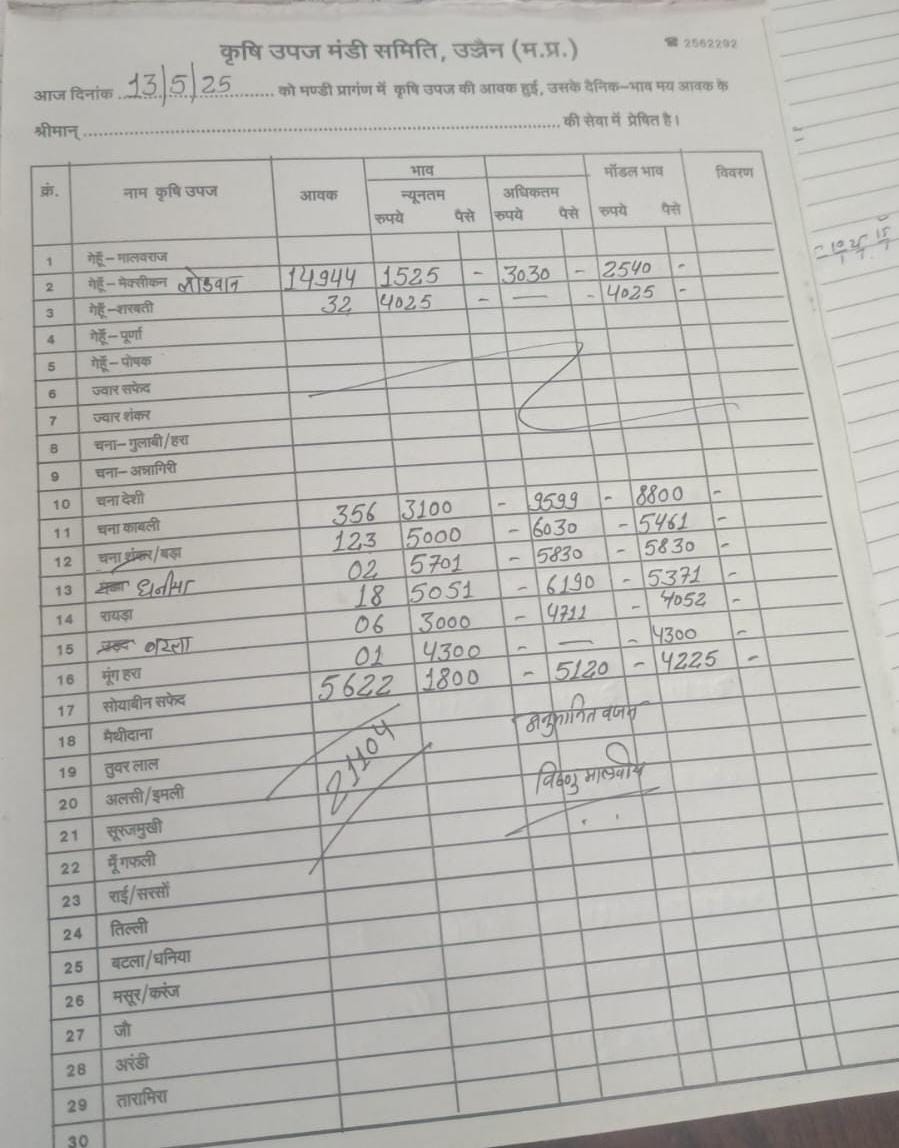 कृषि उपज मंडी समिति, उज्जैन (म.प्र.) ☎ 2562292
आज दिनांक 13/5/25 को मण्डी प्रागंण में कृषि उपज की आवक हुई, उसके दैनिक-भाव मय आवक के
श्रीमान् की सेवा में प्रेषित है।
क्रं. नाम कृषि उपज आवक भाव मॉडल भाव विवरण
न्यूनतम अधिकतम
रुपये पैसे रुपये पैसे रुपये पैसे
1 गेहूँ-मालवराज
2 गेहूँ-मेक्सीकन लोकवान 14944 1525 - 3030 - 2540 -
3 गेहूँ-शरबती 32 4025 - — - 4025 -
4 गेहूँ-पूर्णा
5 गेहूँ-पोषक
6 ज्वार सफेद
7 ज्वार शंकर
8 चना-गुलाबी/हरा
9 चना-अन्नागिरी
10 चना देशी 356 3100 - 9599 - 8800 -
11 चना काबली 123 5000 - 6030 - 5461 -
12 चना शंकर/बड़ा 02 5701 - 5830 - 5830 -
13 धनीया 18 5051 - 6190 - 5371 -
14 रायड़ा 06 3000 - 4711 - 4052 -
15 बटला 01 4300 - — - 4300 -
16 मूंग हरा 5622 1800 - 5120 - 4225 -
17 सोयाबीन सफेद
18 मैथीदाना 21104 अनुमानित वजन
19 तुवर लाल
20 अलसी/इमली विष्णु मालवीय
21 सूरजमुखी
22 मूँगफली
23 राई/सरसों
24 तिल्ली
25 बटला/धनिया
26 मसूर/करंज
27 जौ
28 अरंडी
29 तारामिरा
30